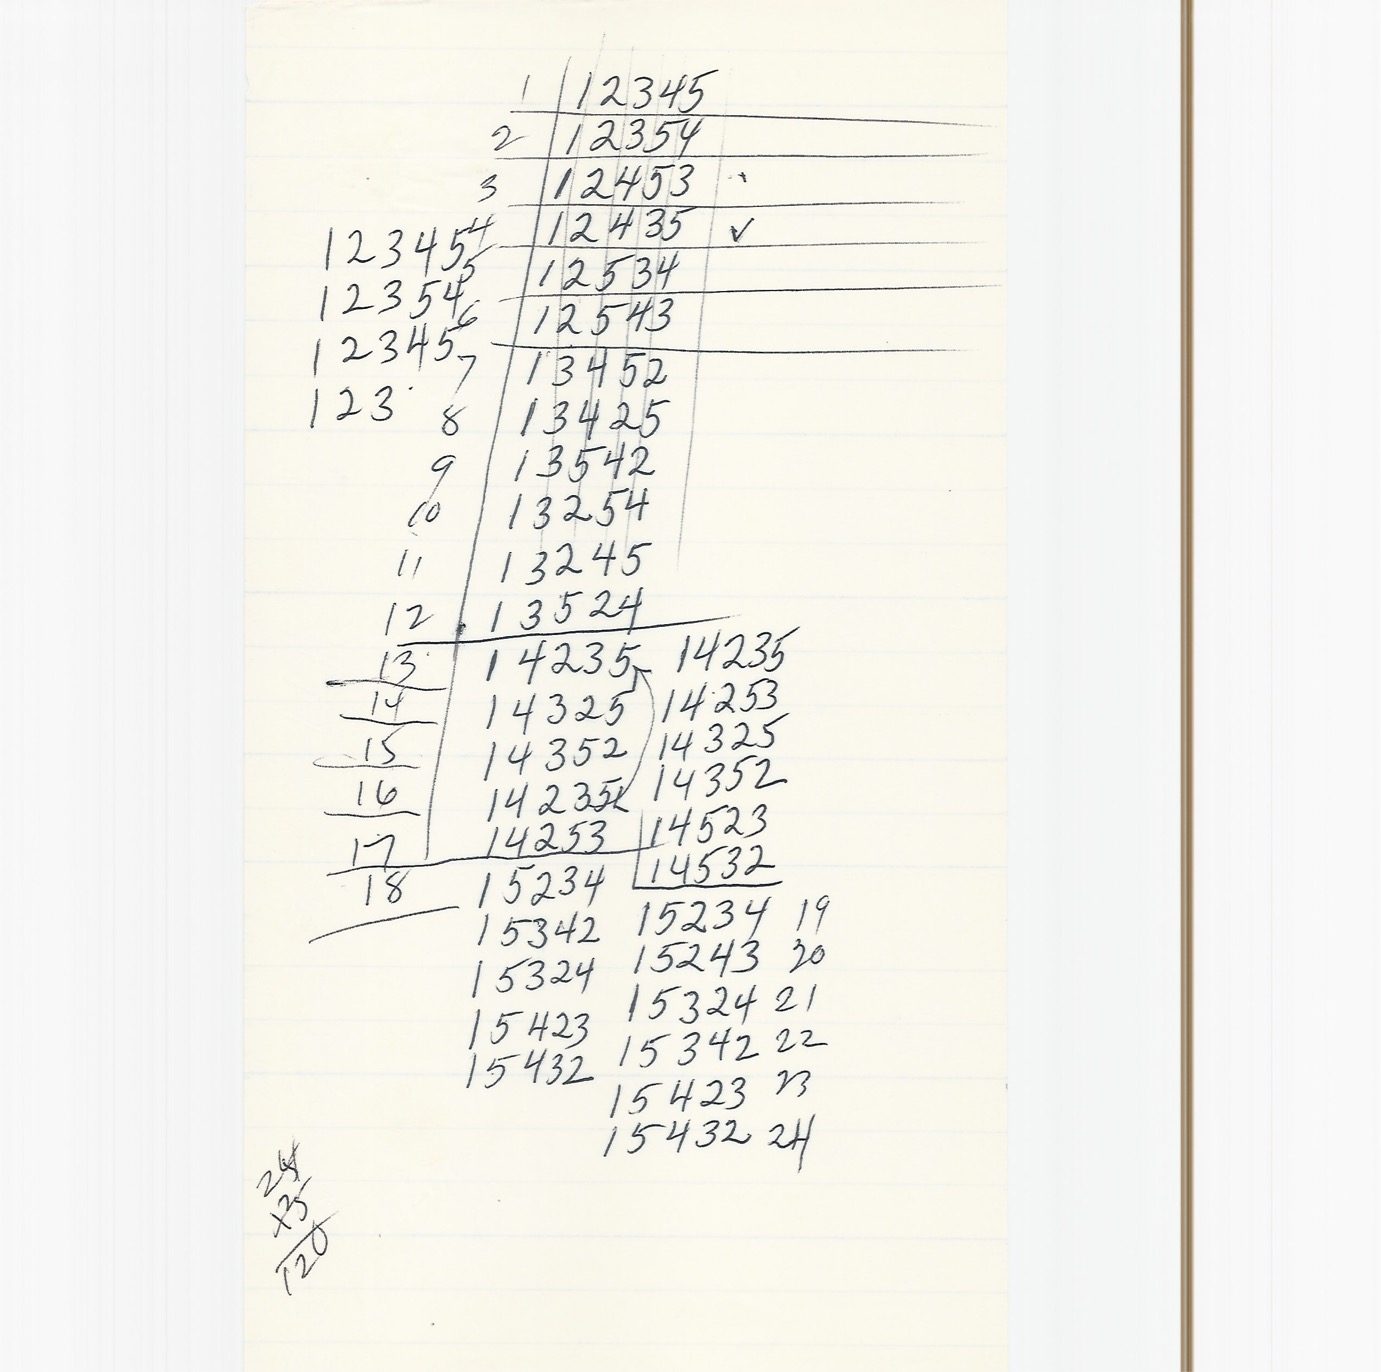 1 12345
2 12354
3 12453
4 12435 ✓
5 12534
6 12543
7 13452
8 13425
9 13542
10 13254
11 13245
12 13524
13 14235
14 14325
15 14352
16 14235
17 14253
18 15234
15342
15324
15423
15432
12345
12354
12345
123
14235
14253
14325
14352
14523
14532
15234 19
15243 20
15324 21
15342 22
15423 23
15432 24
24
x5
120